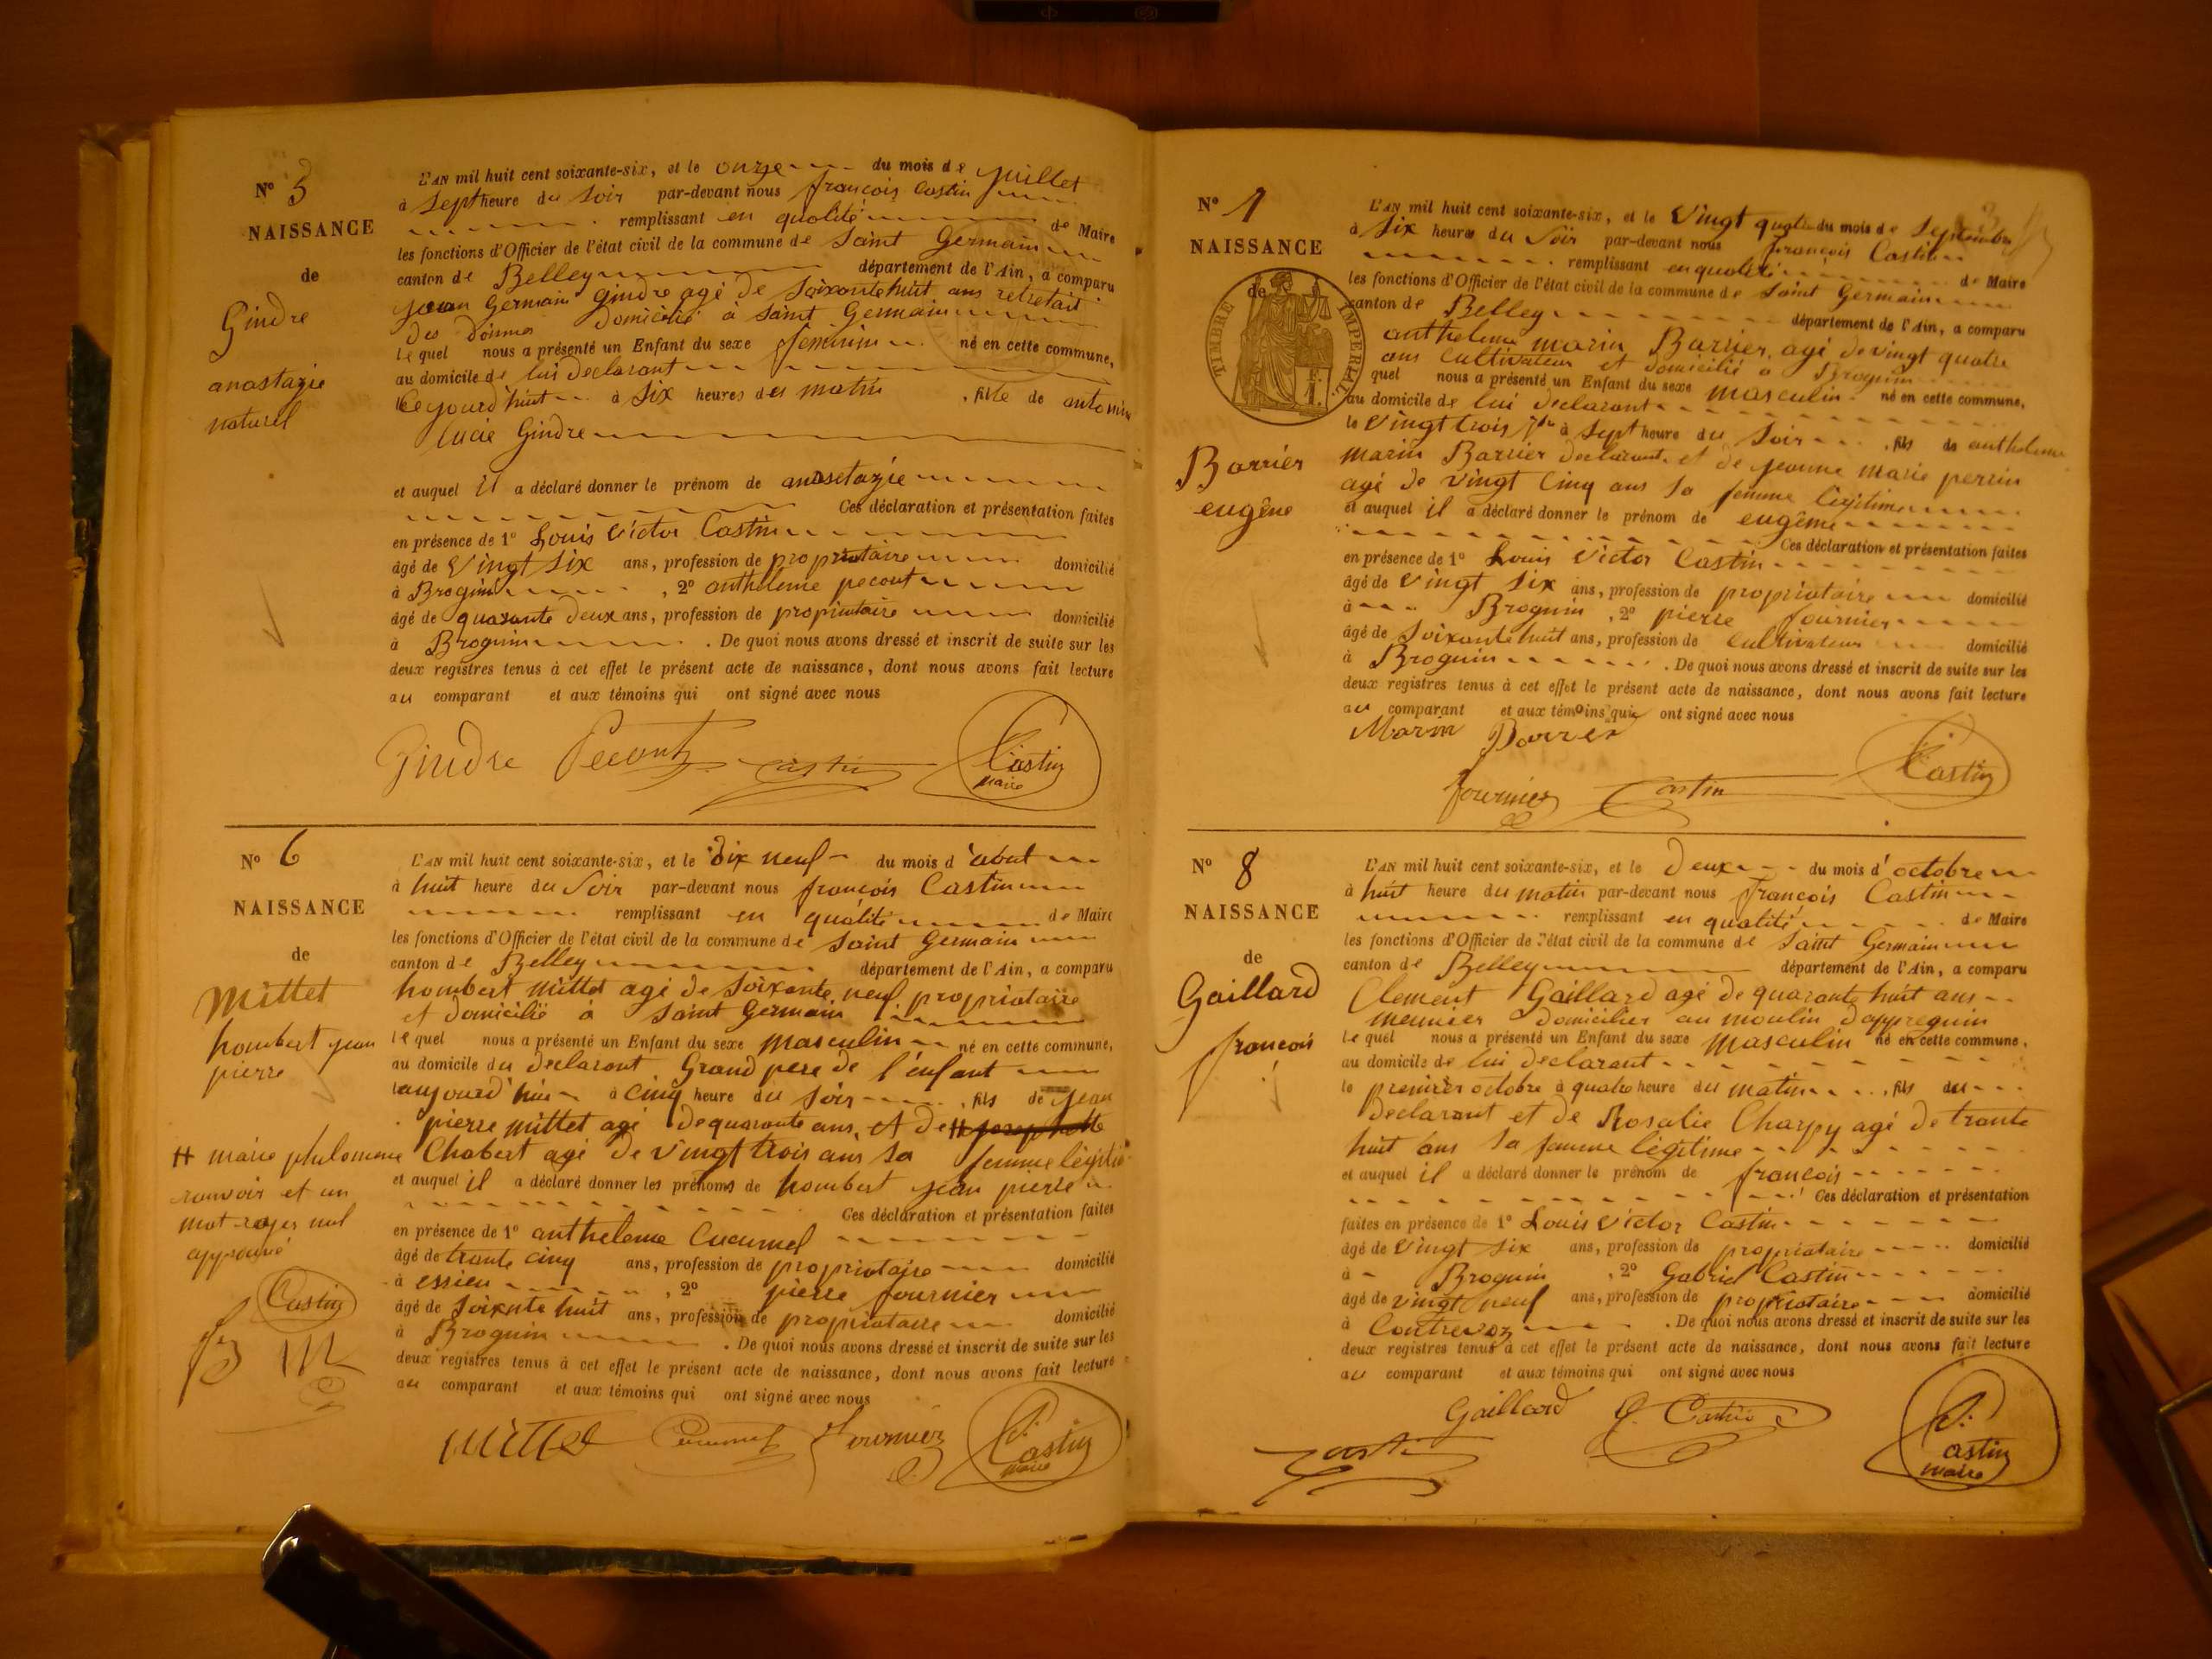 N° 5
NAISSANCE
de
Gindre
anastazie
naturel
L'AN mil huit cent soixante-six, et le onze du mois de juillet
à sept heure du soir par-devant nous françois Castin
remplissant en qualité de Maire
les fonctions d'Officier de l'état civil de la commune de Saint Germain
canton de Belley département de l'Ain, a comparu
jean Germain gindre agé de soixante huit ans retretait
des doines domicilié à saint Germain
lequel nous a présenté un Enfant du sexe feminin né en cette commune,
au domicile de lui declarant
le ce jourd'huit à six heures du matin, fille de antonin
lucie Gindre
et auquel il a déclaré donner le prénom de anasetazie
Ces déclaration et présentation faites
en présence de 1° Louis victor Castin
âgé de vingt six ans, profession de propriotaire domicilié
à Brognin, 2° antheleme pecout
âgé de quarante deux ans, profession de propriotaire domicilié
à Brognin. De quoi nous avons dressé et inscrit de suite sur les
deux registres tenus à cet effet le présent acte de naissance, dont nous avons fait lecture
au comparant et aux témoins qui ont signé avec nous
Gindre Pecout Castin Castin
maire
N° 6
NAISSANCE
de
Mittet
hombert jean
pierre
L'AN mil huit cent soixante-six, et le dix neuf du mois d'about
à huit heure du soir par-devant nous françois Castin
remplissant en qualité de Maire
les fonctions d'Officier de l'état civil de la commune de Saint Germain
canton de Belley département de l'Ain, a comparu
hombert mittet agé de soixante neuf propriotaire
et domicilié à saint Germain
lequel nous a présenté un Enfant du sexe masculin né en cette commune,
au domicile du declarant Grand pere de l'enfant
l'aujourd'hui à cinq heure du soir, fils de jean
pierre mittet agé de quarante ans, et de # josephette
# marie philomene Chabert agé de vingt trois ans sa femme légitime
ranvoir et un
mot rayer nul
approuvé
Castin
et auquel il a déclaré donner les prénoms de hombert jean pierre
Ces déclaration et présentation faites
en présence de 1° antheleme Cucumel
âgé de trante cinq ans, profession de propriotaire domicilié
à essieu, 2° pierre fournier
âgé de soixante huit ans, profession de propriotaire domicilié
à Brognin. De quoi nous avons dressé et inscrit de suite sur les
deux registres tenus à cet effet le présent acte de naissance, dont nous avons fait lecture
au comparant et aux témoins qui ont signé avec nous
Mittet Cucumel fournier Castin
maire
N° 7
NAISSANCE
de
TIMBRE IMPERIAL
Barrier
eugêne
L'AN mil huit cent soixante-six, et le vingt quatre du mois de septembre
à six heures du soir par-devant nous françois Castin
remplissant en qualité de Maire
les fonctions d'Officier de l'état civil de la commune de saint Germain
canton de Belley département de l'Ain, a comparu
antheleme marin Barrier, agé de vingt quatre
ans cultivateur et domicilié à Brognin
quel nous a présenté un Enfant du sexe masculin né en cette commune,
au domicile de lui declarant
le vingt trois 7bre à sept heure du soir, fils de antheleme
marin Barrier declarant et de jeanne marie perrin
agé de vingt cinq ans sa femme légitime
et auquel il a déclaré donner le prénom de eugême
Ces déclaration et présentation faites
en présence de 1° Louis victor Castin
âgé de vingt six ans, profession de propriotaire domicilié
à Brognin, 2° pierre fournier
âgé de soixante huit ans, profession de cultivateur domicilié
à Brognin. De quoi nous avons dressé et inscrit de suite sur les
deux registres tenus à cet effet le présent acte de naissance, dont nous avons fait lecture
au comparant et aux témoins qui ont signé avec nous
Marin Barrer
fournier Castin Castin
N° 8
NAISSANCE
de
Gaillard
françois
L'AN mil huit cent soixante-six, et le deux du mois d'octobre
à huit heure du matin par-devant nous françois Castin
remplissant en qualité de Maire
les fonctions d'Officier de l'état civil de la commune de Saint Germain
canton de Belley département de l'Ain, a comparu
Clement Gaillard agé de quarante huit ans
meunier domicilier au moulin d'appregnin
lequel nous a présenté un Enfant du sexe masculin né en cette commune,
au domicile de lui declarant
le premier octobre à quatre heure du matin, fils du
declarant et de Rosalie Charpy agé de trante
huit ans sa femme légitime
et auquel il a déclaré donner le prénom de françois
Ces déclaration et présentation
faites en présence de 1° Louis victor Castin
âgé de vingt six ans, profession de propriotaire domicilié
à Brognin, 2° Gabriel Castin
âgé de vingt neuf ans, profession de propriotaire domicilié
à Contrevoz. De quoi nous avons dressé et inscrit de suite sur les
deux registres tenus à cet effet le présent acte de naissance, dont nous avons fait lecture
au comparant et aux témoins qui ont signé avec nous
Gaillard G. Castin
Castin
Castin
maire